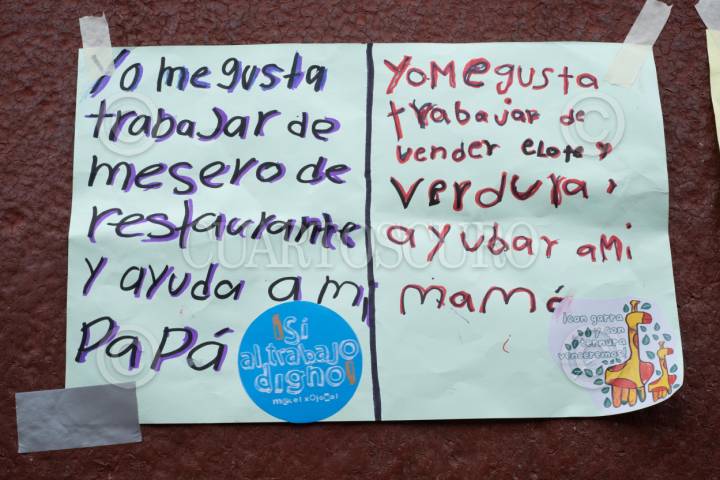 Yo me gusta
trabajar de
mesero de
restaurante
y ayuda a mi
PaPá
¡Sí
al trabajo
digno!
Yo Me gusta
trabajar de
vender elote y
verdura,
ayubar a Mi
mamá
¡con garra
y con
ternura
venceremos!
CUARTOSCURO